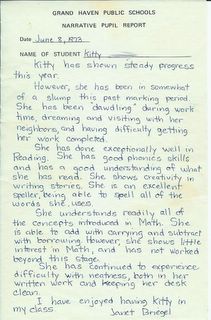 GRAND HAVEN PUBLIC SCHOOLS
NARRATIVE PUPIL REPORT
Date June 8, 1973
NAME OF STUDENT Kitty
Kitty has shown steady progress
this year.
However, she has been in somewhat
of a slump this past marking period.
She has been "dawdling" during work
time, dreaming and visiting with her
neighbors, and having difficulty getting
her work completed.
She has done exceptionally well in
Reading. She has good phonics skills
and has a good understanding of what
she has read. She shows creativity in
writing stories. She is an excellent
speller, being able to spell all of the
words she uses.
She understands readily all of
the concepts introduced in Math. She
is able to add with carrying and subtract
with borrowing. However, she shows little
interest in Math, and has not worked
beyond this stage.
She has continued to experience
difficulty with neatness, both in her
written work and keeping her desk
clean.
I have enjoyed having Kitty in
my class. Janet